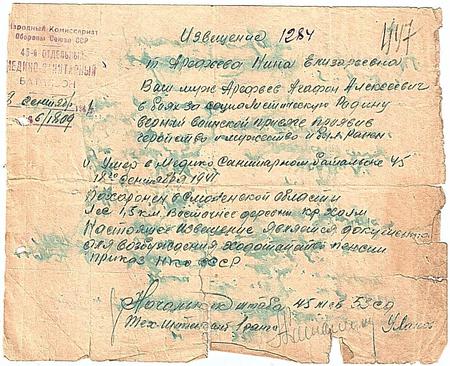 Народный Комиссариат
Обороны Союза ССР
45-й ОТДЕЛЬНЫЙ
МЕДИКО-САНИТАРНЫЙ
БАТАЛЬОН
Сентябр
Извещение 1284
т Арефьева Нина Елизарьевна
Ваш муж Арефьев Агафон Алексеевич
в боях за социалистическую Родину
верный воинской присяге проявив
геройство и мужество и был Ранен
и умер в Медико Санитарном Баталионе 45
18го Сентября 1941
Похоронен в Смоленской области
Лес 1,5 км. Восточнее деревни кр. Холм
Настоящее извещение является документом
для возбуждения ходотайства пенсии
приказ НКО СССР
Начальник штаба 45 мсб 53 сд
Уланов